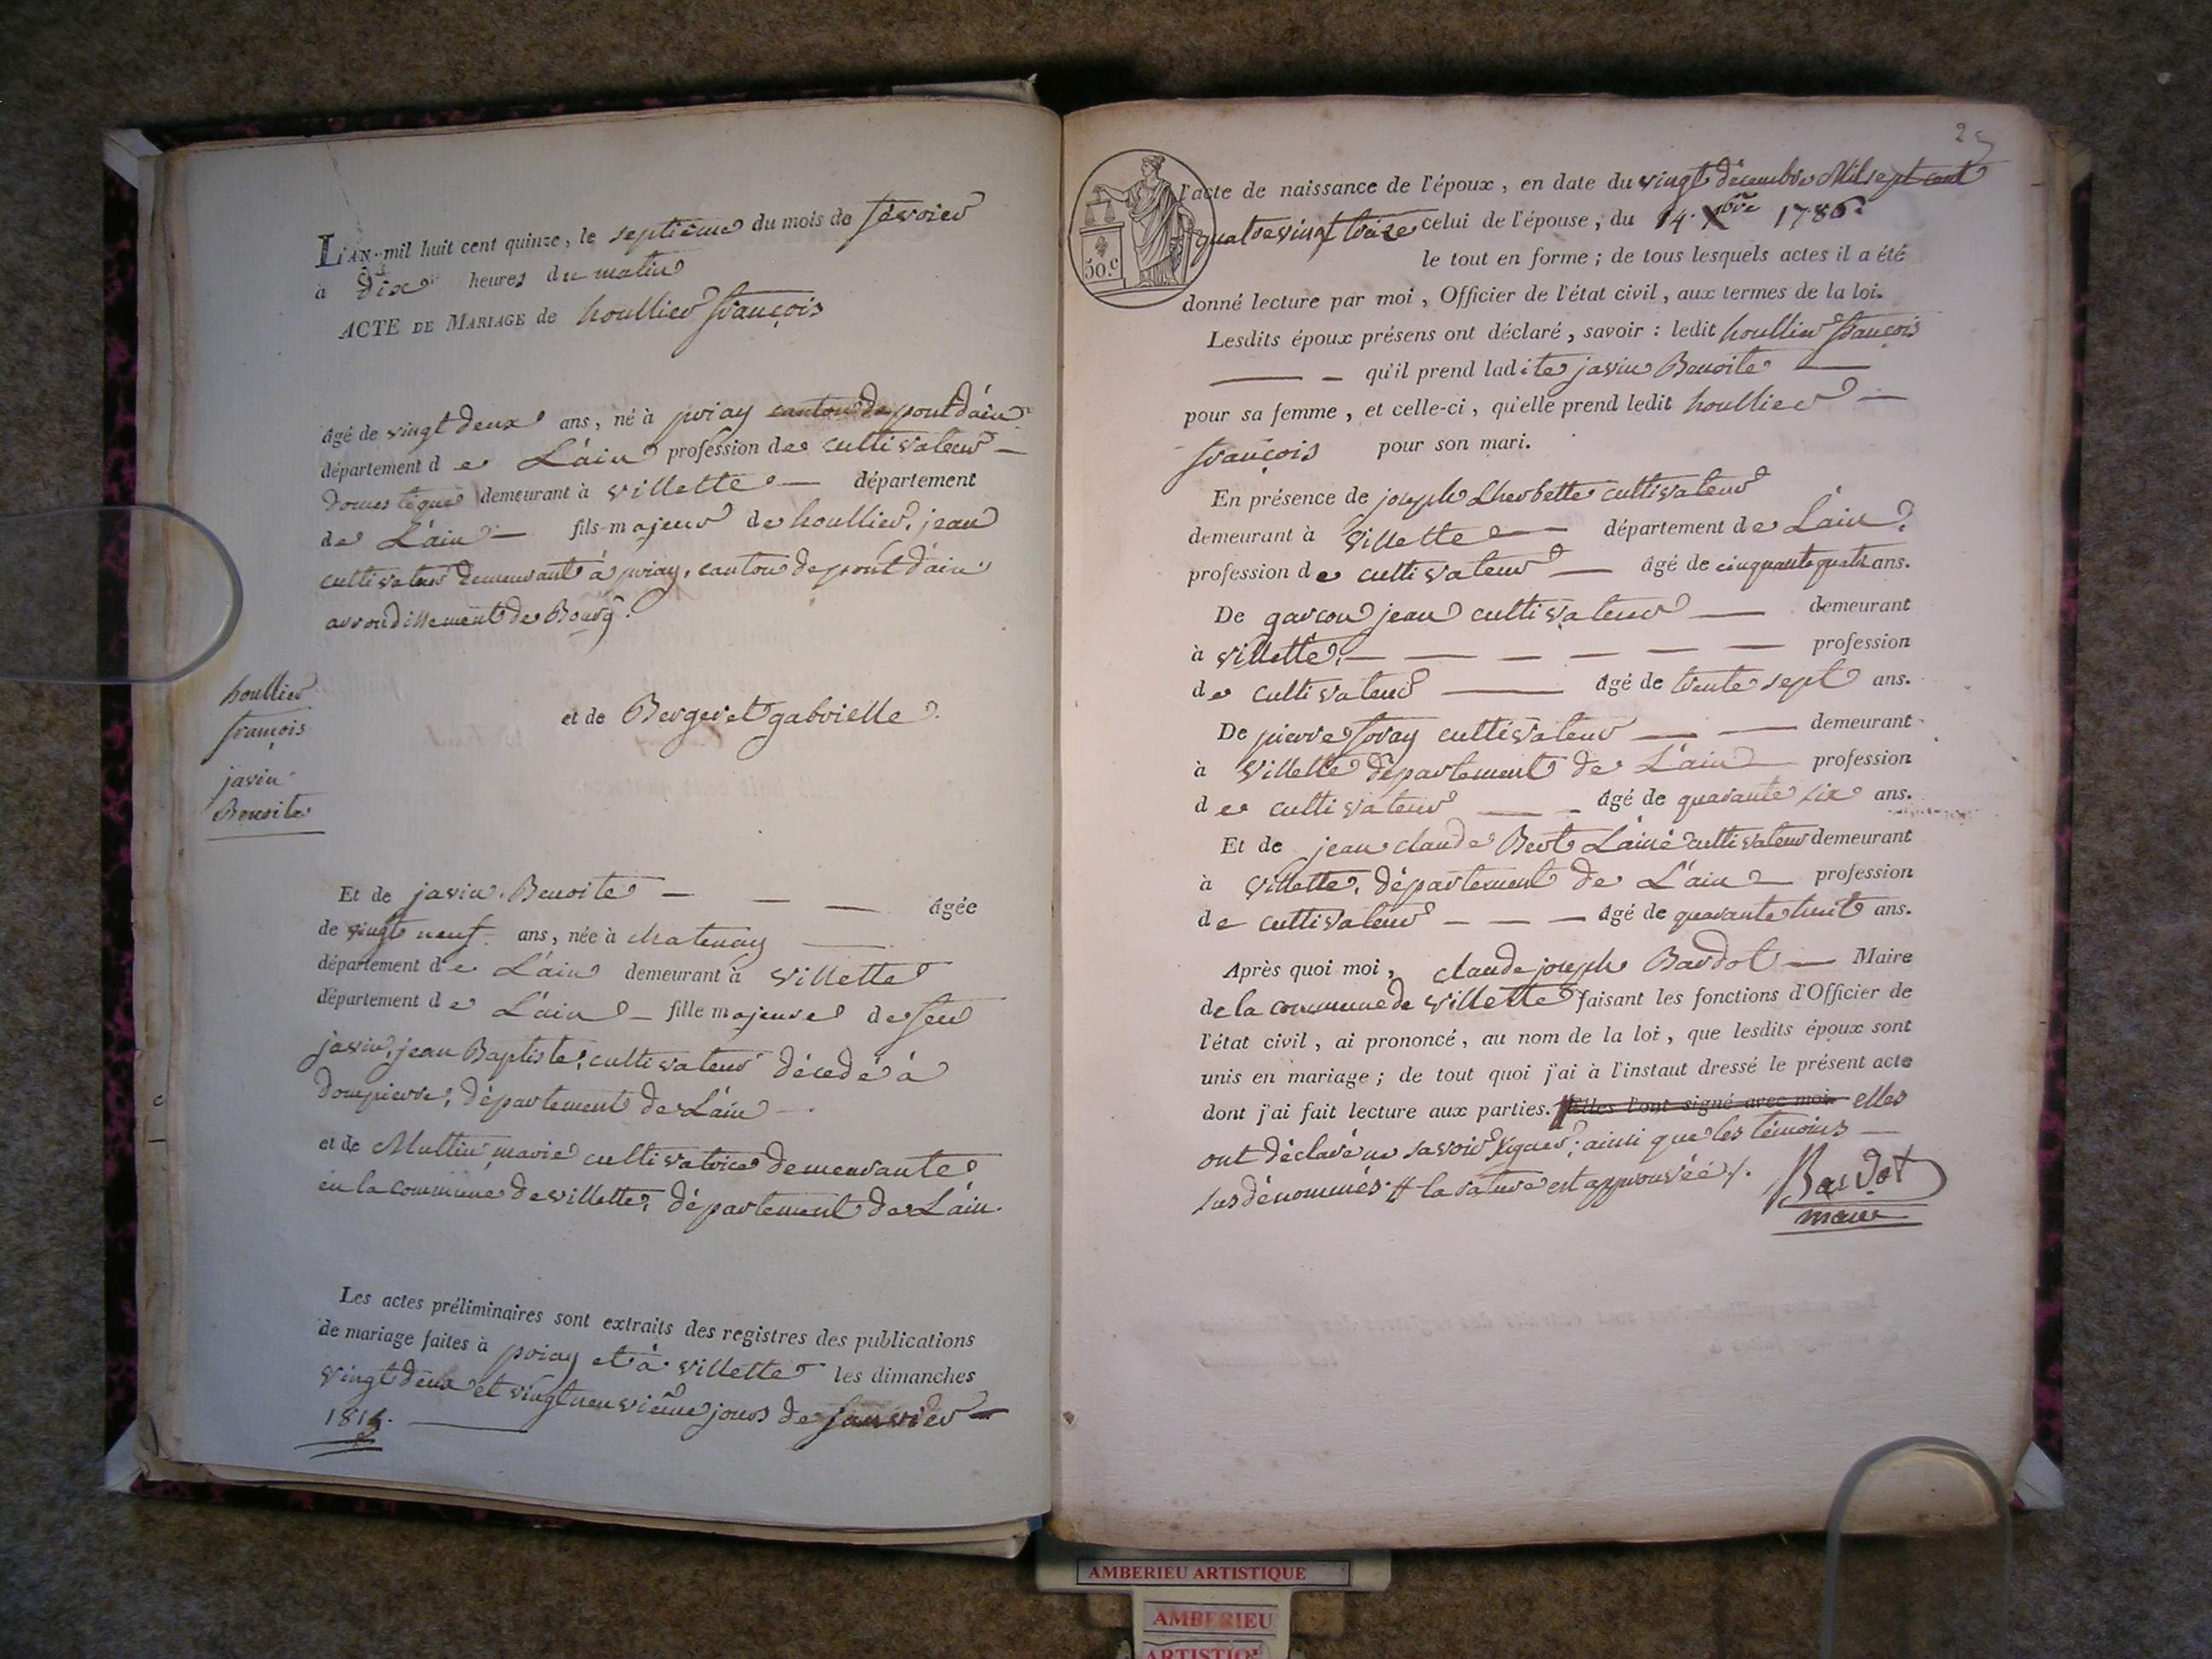 L'AN mil huit cent quinze, le septieme du mois de février
à Dix heures du matin
ACTE DE MARIAGE de houllier françois
âgé de vingt deux ans, né à priay canton de pont d'ain
département de L'ain profession de cultivateur —
Domestique demeurant à villette — département
de L'ain — fils majeur de houllier, jean
cultivateur demeurant à priay, canton de pont d'ain
arrondissement de Bourg.
houllier
françois
javin
Benoite
et de Bergeret gabrielle.
Et de javin Benoite — — — âgée
de vingt neuf ans, née à chatenay —
département de L'ain demeurant à villette
département de L'ain — fille majeure de feu
javin, jean Baptiste, cultivateur décedé à
Dompierre, département de L'ain —
et de Multin marie cultivatrice demeurante
en la commune de villette, département de L'ain.
Les actes préliminaires sont extraits des registres des publications
de mariage faites à priay et à villette les dimanches
vingt deux et vingt neuvième jours de janvier —
1815.
25
50.c
l'acte de naissance de l'époux, en date du vingt décembre Mil sept cent
quatre vingt treize celui de l'épouse, du 14. Xbre 1786.
le tout en forme ; de tous lesquels actes il a été
donné lecture par moi, Officier de l'état civil, aux termes de la loi.
Lesdits époux présens ont déclaré, savoir : ledit houllier françois
— — qu'il prend ladite javin Benoite —
pour sa femme, et celle-ci, qu'elle prend ledit houllier —
françois pour son mari.
En présence de joseph Lherbette cultivateur
demeurant à villette — département de L'ain
profession de cultivateur — âgé de cinquante quatre ans.
De garcon jean cultivateur — demeurant
à villette, — — — — — — profession
de cultivateur — âgé de trente sept ans.
De pierre foray cultivateur — — demeurant
à villette département de L'ain profession
de cultivateur — — âgé de quarante six ans.
Et de jean claude Bert L'ainé cultivateur demeurant
à villette, département de L'ain profession
de cultivateur — — — âgé de quarante huit ans.
Après quoi moi, claude joseph Bardot — Maire
de la commune de villette faisant les fonctions d'Officier de
l'état civil, ai prononcé, au nom de la loi, que lesdits époux sont
unis en mariage ; de tout quoi j'ai à l'instaut dressé le présent acte
dont j'ai fait lecture aux parties. # Elles l'ont signé avec moi. elles
ont déclaré ne savoir signer, ainsi que les témoins —
susdénommés. # la rature est approuvée /. Bardot
maire
AMBERIEU ARTISTIQUE
AMBERIEU
ARTISTIQUE